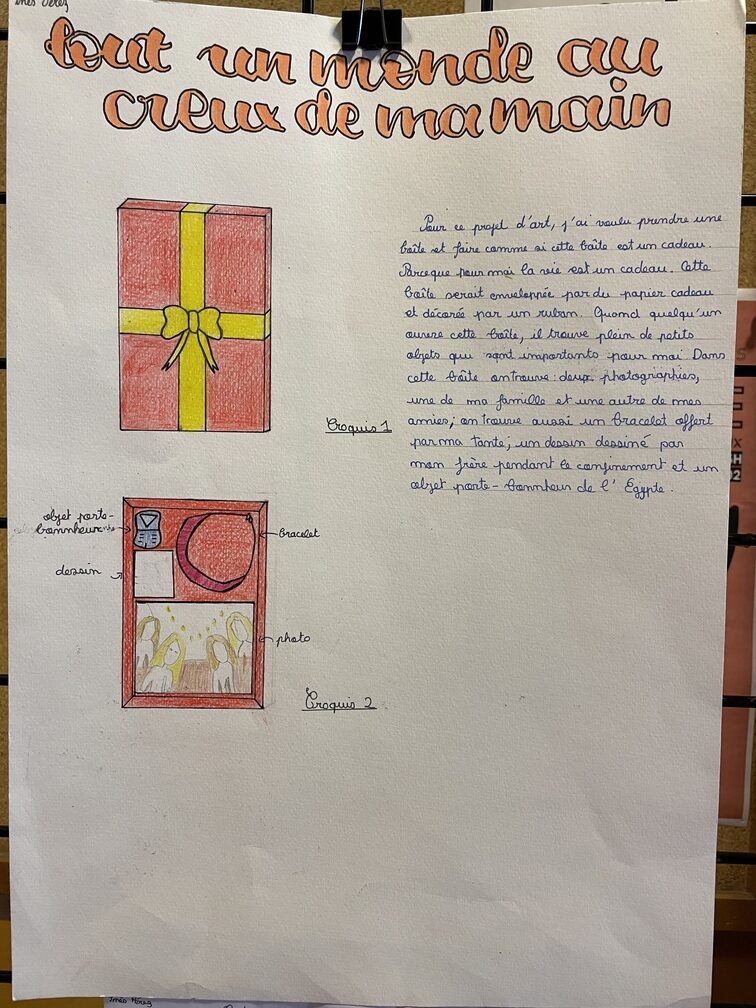 tout un monde au
creux de ma main
Pour ce projet d'art, j'ai voulu prendre une
boîte et faire comme si cette boîte est un cadeau.
Parceque pour moi la vie est un cadeau. Cette
boîte serait enveloppée par du papier cadeau
et décorée par un ruban. Quand quelqu'un
ouvre cette boîte, il trouve plein de petits
objets qui sont importants pour moi. Dans
cette boîte on trouve: deux photographies,
une de ma famille et une autre de mes
amies; on trouve aussi un bracelet offert
par ma tante; un dessin dessiné par
mon frère pendant le confinement et un
objet porte-bonnheur de l'Égypte.
Croquis 1
objet porte-
bonnheur
bracelet
dessin
photo
Croquis 2